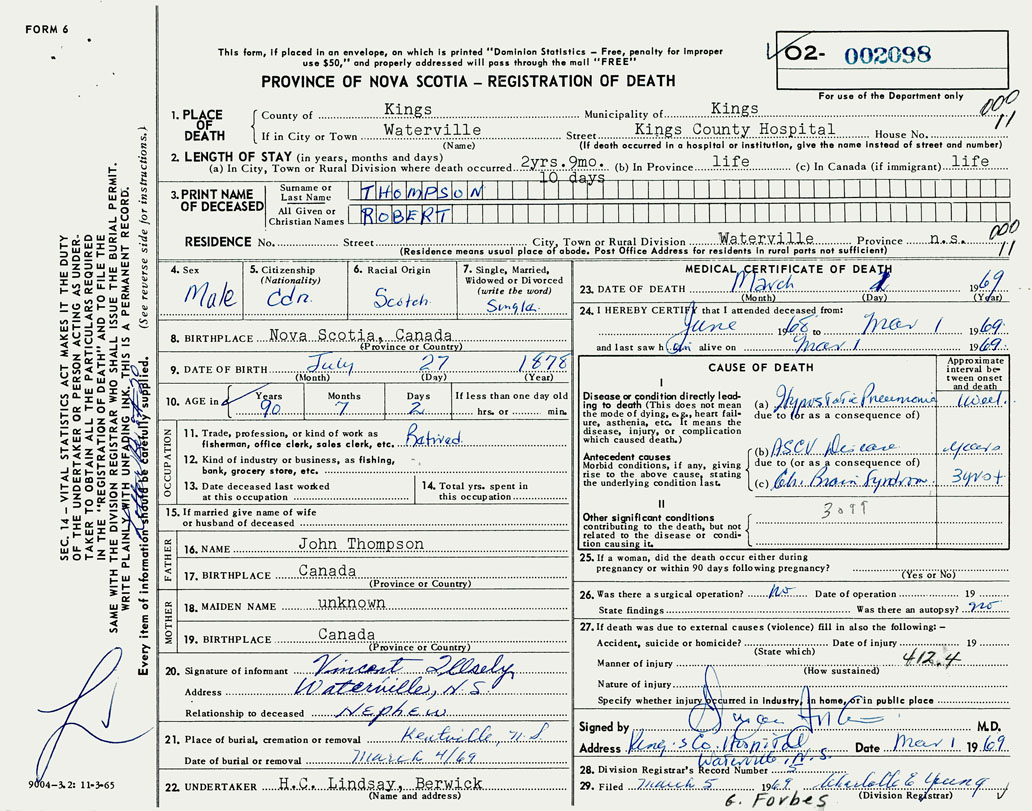 FORM 6
This form, if placed in an envelope, on which is printed "Dominion Statistics – Free, penalty for improper
use $50," and properly addressed will pass through the mail "FREE"
PROVINCE OF NOVA SCOTIA – REGISTRATION OF DEATH
O2- 002098
For use of the Department only
1. PLACE OF DEATH
County of Kings Municipality of Kings 000
If in City or Town Waterville Street Kings County Hospital House No. 11
(Name) (If death occurred in a hospital or institution, give the name instead of street and number)
2. LENGTH OF STAY (in years, months and days)
(a) In City, Town or Rural Division where death occurred 2yrs. 9mo. (b) In Province life (c) In Canada (if immigrant) life
10 days
3. PRINT NAME OF DECEASED
Surname or Last Name THOMPSON
All Given or Christian Names ROBERT
RESIDENCE No. Street City, Town or Rural Division Waterville Province n.s. 000
(Residence means usual place of abode. Post Office Address for residents in rural parts not sufficient) 11
4. Sex Male
5. Citizenship (Nationality) Cdn.
6. Racial Origin Scotch
7. Single, Married, Widowed or Divorced (write the word) Single
8. BIRTHPLACE Nova Scotia, Canada
(Province or Country)
9. DATE OF BIRTH July 27 1878
(Month) (Day) (Year)
10. AGE in Years 90 Months 7 Days 2 If less than one day old hrs. or min.
OCCUPATION
11. Trade, profession, or kind of work as
fisherman, office clerk, sales clerk, etc. Retired
12. Kind of industry or business, as fishing,
bank, grocery store, etc.
13. Date deceased last worked
at this occupation
14. Total yrs. spent in
this occupation
15. If married give name of wife
or husband of deceased
FATHER
16. NAME John Thompson
17. BIRTHPLACE Canada
(Province or Country)
MOTHER
18. MAIDEN NAME unknown
19. BIRTHPLACE Canada
(Province or Country)
20. Signature of informant Vincent Illsely
Address Waterville, N.S.
Relationship to deceased NEPHEW
21. Place of burial, cremation or removal Kentville, N S
Date of burial or removal March 4/69
22. UNDERTAKER H.C. Lindsay, Berwick
(Name and address)
MEDICAL CERTIFICATE OF DEATH
23. DATE OF DEATH March 1 1969
(Month) (Day) (Year)
24. I HEREBY CERTIFY that I attended deceased from:
June 1968 to Mar 1 1969
and last saw him alive on Mar 1 1969.
CAUSE OF DEATH
Approximate interval between onset and death
I
Disease or condition directly leading
to death (This does not mean
the mode of dying, e.g., heart failure,
asthenia, etc. It means the
disease, injury, or complication
which caused death.)
(a) Hypostatic Pneumonia 1 week.
due to (or as a consequence of)
Antecedent causes
Morbid conditions, if any, giving
rise to the above cause, stating
the underlying condition last.
(b) ASCV Disease years
due to (or as a consequence of)
(c) Ch. Brain Syndrom. 3 yrs +
II
Other significant conditions
contributing to the death, but not
related to the disease or condition
causing it.
25. If a woman, did the death occur either during
pregnancy or within 90 days following pregnancy?
(Yes or No)
26. Was there a surgical operation? no Date of operation 19
State findings Was there an autopsy? no
27. If death was due to external causes (violence) fill in also the following: –
Accident, suicide or homicide? Date of injury 19
(State which) 412.4
Manner of injury
(How sustained)
Nature of injury
Specify whether injury occurred in Industry, in home, or in public place
Signed by M.D.
Address King's Co. Hospital Date Mar 1 1969
Waterville, N.S.
28. Division Registrar's Record Number 5
29. Filed March 5 1969 Charlotte E Young
(Division Registrar)
G. Forbes
SEC. 14 – VITAL STATISTICS ACT MAKES IT THE DUTY
OF THE UNDERTAKER OR PERSON ACTING AS UNDERTAKER
TO OBTAIN ALL THE PARTICULARS REQUIRED
IN THE "REGISTRATION OF DEATH" AND TO FILE THE
SAME WITH THE DIVISION REGISTRAR WHO SHALL ISSUE THE BURIAL PERMIT.
WRITE PLAINLY WITH UNFADING INK. THIS IS A PERMANENT RECORD.
Every item of information should be carefully supplied. (See reverse side for instructions.)
9004-3.2: 11-3-65